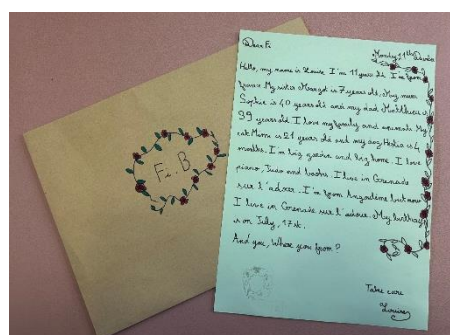 Fi.. B.
Dear Fi
Monday 11th
Hello, my name is Louise I'm 11 years old. I'm from
France. My sister Margot is 7 years old. My mum
Sophie is 40 years old and my dad Matthieu is
39 years old. I love my family and animals. My
cat Mimi is 21 years old and my dog is 4
months. I'm big and big home. I love
piano, Judo and books. I live in Grenade
sur l'adour. I'm from Angoulême but now
I live in Grenade sur l'adour. My birthday
is on July, 17st.
And you, Where you from?
Take care
Louise